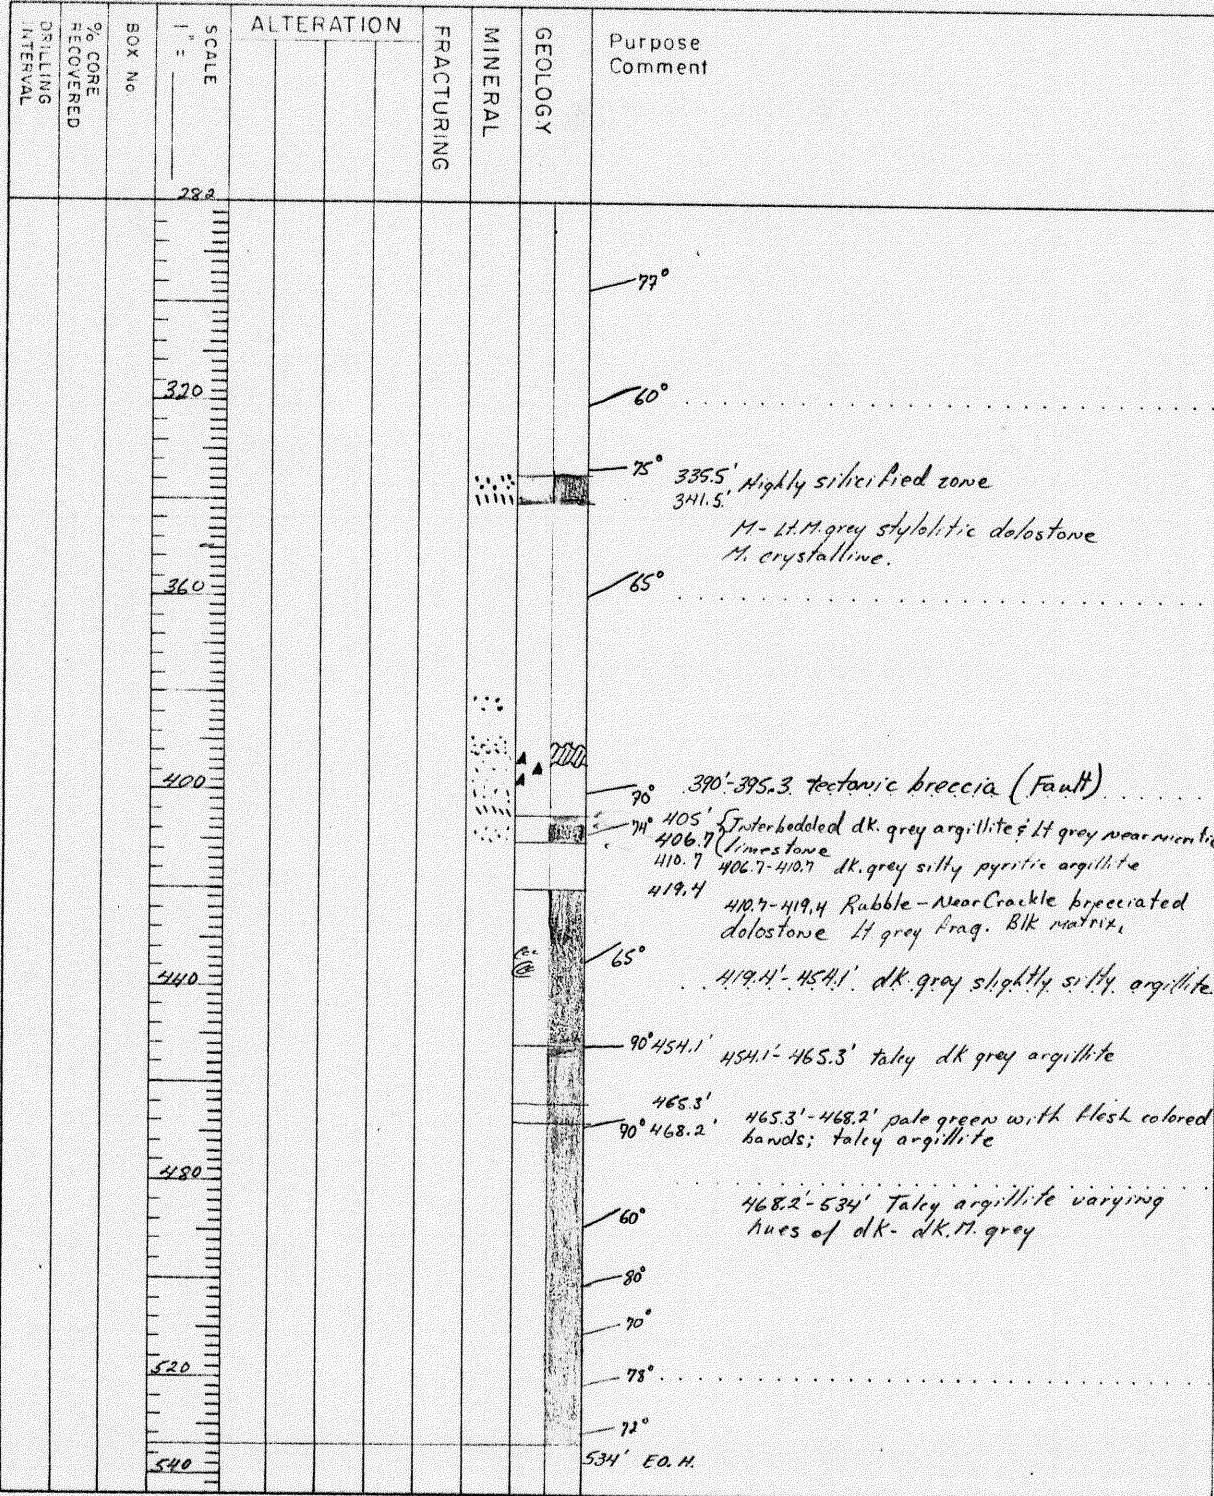 DRILLING INTERVAL
% CORE RECOVERED
BOX No
SCALE 1" =
ALTERATION
FRACTURING
MINERAL
GEOLOGY
Purpose
Comment
282
77°
320
60°
75°
335.5' Highly silicified zone
341.5'
M-Lt.M.grey stylolitic dolostone
M. crystalline.
360
65°
400
390'-395.3 tectonic breccia (Fault)
70°
74° 405' {Interbedded dk. grey argillite & Lt grey near micritic
406.7 limestone
410.7 406.7-410.7 dk. grey silty pyritic argillite
419.4
410.7-419.4 Rubble-Near Crackle brecciated
dolostone Lt grey frag. Blk matrix.
65°
440
419.4'-454.1' dk grey slightly silty argillite
90° 454.1' 454.1'-465.3' talcy dk grey argillite
465.3'
90° 468.2' 465.3'-468.2' pale green with flesh colored
bands; talcy argillite
480
468.2'-534' Talcy argillite varying
hues of dk- dk.M. grey
60°
80°
70°
520
78°
72°
534' E.O.H.
540